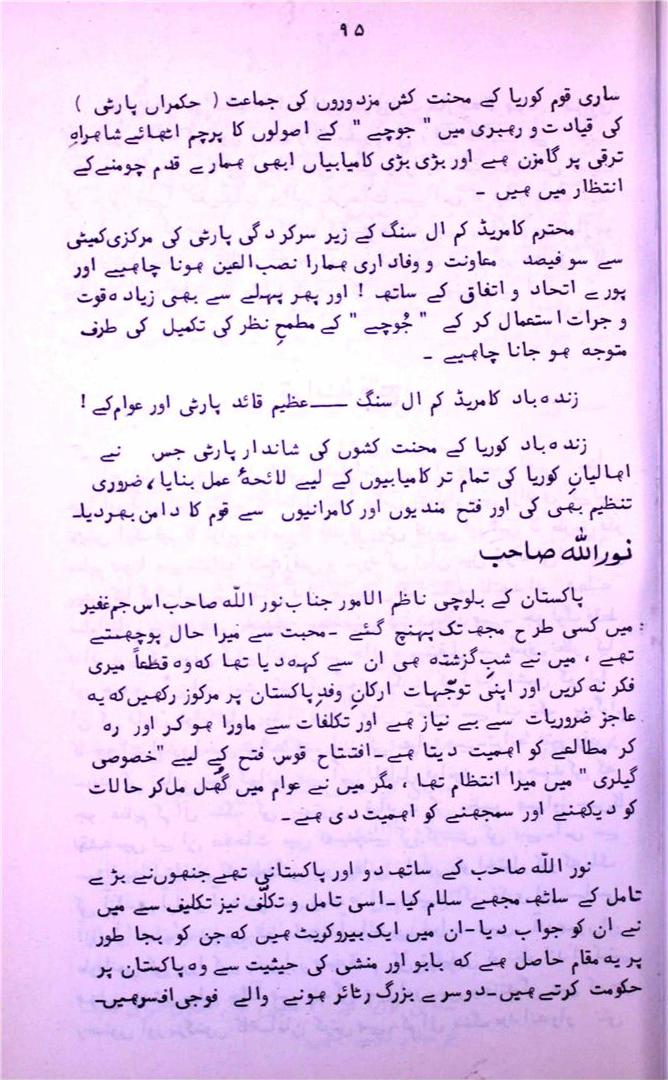 ۹۵
ساری قوم کوریا کے محنت کش مزدوروں کی جماعت ( حکمراں پارٹی )
کی قیادت و رهبری میں " جوچے " کے اصولوں کا پرچم اٹھائے شاهراہِ
ترقی پر گامزن هے اور بڑی بڑی کامیابیاں ابھی همارے قدم چومنے کے
انتظار میں هیں ۔
محترم کامریڈ کم ال سنگ کے زیر سرکردگی پارٹی کی مرکزی کمیٹی
سے سو فیصد معاونت و وفاداری همارا نصب العین هونا چاهیے اور
پورے اتحاد و اتفاق کے ساتھ ! اور پھر پہلے سے بھی زیادہ قوت
و جرات استعمال کر کے " جُوچے " کے مطمحِ نظر کی تکمیل کی طرف
متوجه هو جانا چاهیے ۔
زندہ باد کامریڈ کم ال سنگ ــــ عظیم قائد پارٹی اور عوام کے !
زندہ باد کوریا کے محنت کشوں کی شاندار پارٹی جس نے
اهالیانِ کوریا کی تمام تر کامیابیوں کے لیے لائحۂ عمل بنایا، ضروری
تنظیم بھی کی اور فتح مندیوں اور کامرانیوں سے قوم کا دامن بھر دیا۔
نور الله صاحب
پاکستان کے بلوچی ناظم الامور جناب نور الله صاحب اس جم غفیر
میں کسی طرح مجھ تک پہنچ گئے ۔ محبت سے میرا حال پوچھتے
تھے ، میں نے شبِ گزشته هی ان سے کہه دیا تھا که وہ قطعاً میری
فکر نه کریں اور اپنی توجّہات ارکانِ وفدِ پاکستان پر مرکوز رکھیں که یه
عاجز ضروریات سے بے نیاز هے اور تکلفات سے ماورا هو کر اور رہ
کر مطالعے کو اهمیت دیتا هے۔ افتتاح قوس فتح کے لیے "خصوصی
گیلری " میں میرا انتظام تھا ، مگر میں نے عوام میں گھُل مل کر حالات
کو دیکھنے اور سمجھنے کو اهمیت دی هے ۔
نور الله صاحب کے ساتھ دو اور پاکستانی تھے جنھوں نے بڑے
تامل کے ساتھ مجھے سلام کیا ۔ اسی تامل و تکلّف نیز تکلیف سے میں
نے ان کو جواب دیا۔ ان میں ایک بیوروکریٹ هیں که جن کو بجا طور
پر یه مقام حاصل هے که بابو اور منشی کی حیثیت سے وہ پاکستان پر
حکومت کرتے هیں۔ دوسرے بزرگ رٹائر هونے والے فوجی افسر هیں۔